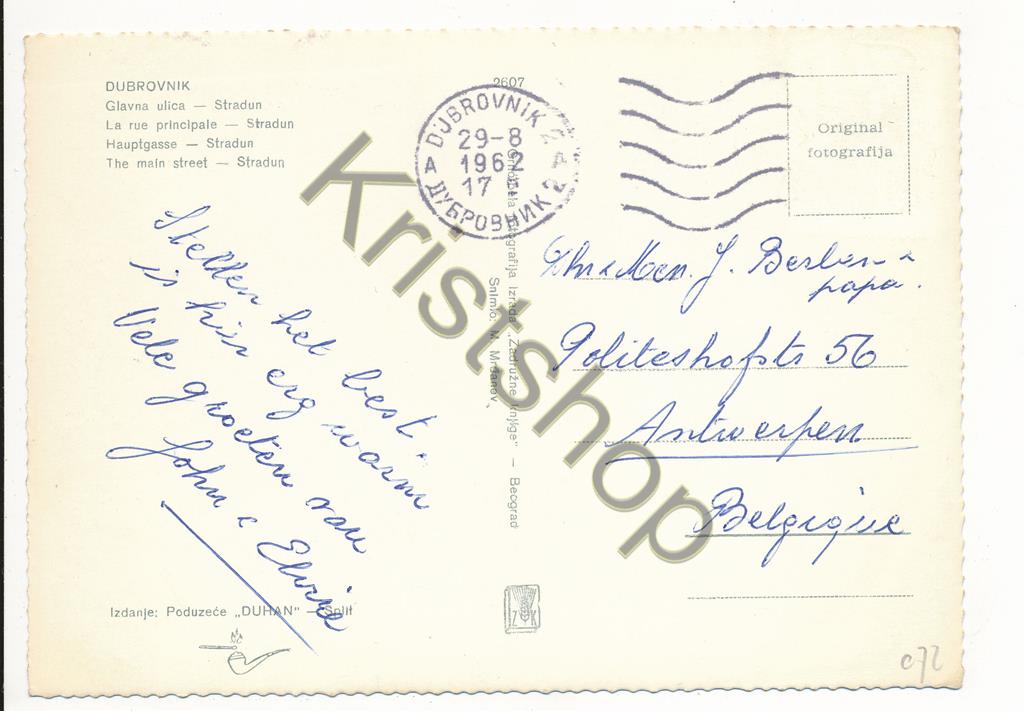 DUBROVNIK
Glavna ulica — Stradun
La rue principale — Stradun
Hauptgasse — Stradun
The main street — Stradun
2607
DUBROVNIK 2
29-8
1962
17
A
ДУБРОВНИК 2
Original
fotografija
Stellen het best
is hier erg warm
Vele groeten van
John & Elvire
Dhr & Men. J. &
papa.
56
Antwerpen
Belgique
fotografija Izrada „Zadružne knjige" — Beograd
Snimio: M.
Izdanje: Poduzeće „DUHAN" — Split
Z K
c72
Kristshop